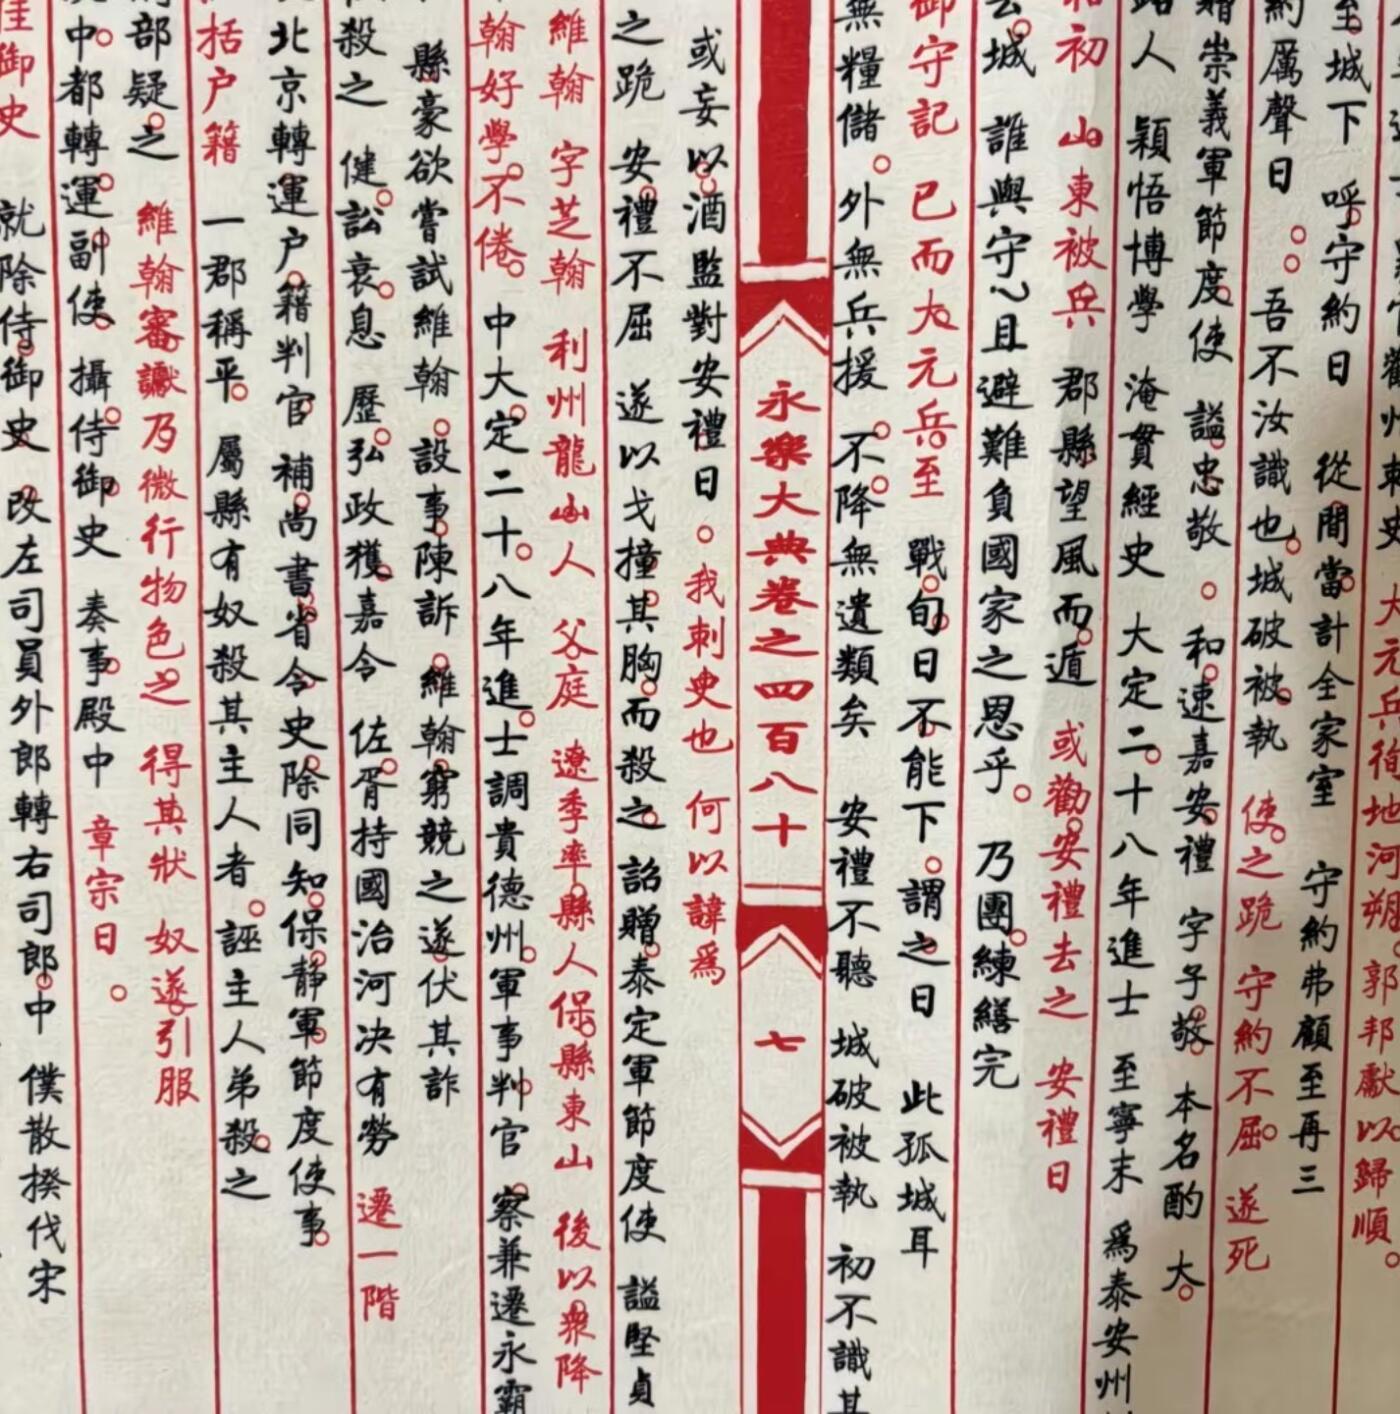 觀州刺史 大元兵徇地河朔 郭邦獻以歸順
至城下 呼守約曰 從間當計全家室 守約弗顧至再三
約厲聲曰 吾不汝識也 城破被執 使之跪 守約不屈 遂死
贈崇義軍節度使 謚忠敬 和速嘉安禮 字子敬 本名酌 大
路人 穎悟博學 淹貫經史 大定二十八年進士 至寧末 爲泰安州
初 山東被兵 郡縣望風而遁 或勸安禮去之 安禮曰
去城 誰與守 且避難負國家之恩乎 乃團練繕完
御守記 已而大元兵至 戰旬日不能下 謂之曰 此孤城耳
無糧儲 外無兵援 不降無遺類矣 安禮不聽 城破被執 初不識其
永樂大典卷之四百八十 七
或妄以酒監對安禮曰 我刺史也 何以諱爲
之跪 安禮不屈 遂以戈撞其胸而殺之 詔贈泰定軍節度使 謚堅貞
維翰 字芝翰 利州龍山人 父庭 遼季率縣人保縣東山 後以衆降
翰好學不倦 中大定二十八年進士調貴德州軍事判官 察兼遷永霸
縣豪欲嘗試維翰 設事陳訴 維翰窮競之遂伏其詐
殺之 健訟衰息 歷弘政獲嘉令 佐胥持國治河决有勞 遷一階
北京轉運户籍判官 補尚書省令史除同知保靜軍節度使事
括户籍 一郡稱平 屬縣有奴殺其主人者 誣主人弟殺之
部疑之 維翰審讞乃微行物色之 得其狀 奴遂引服
中都轉運副使 攝侍御史 奏事殿中 章宗曰
佳御史 就除侍御史 改左司員外郎轉右司郎中 僕散揆伐宋